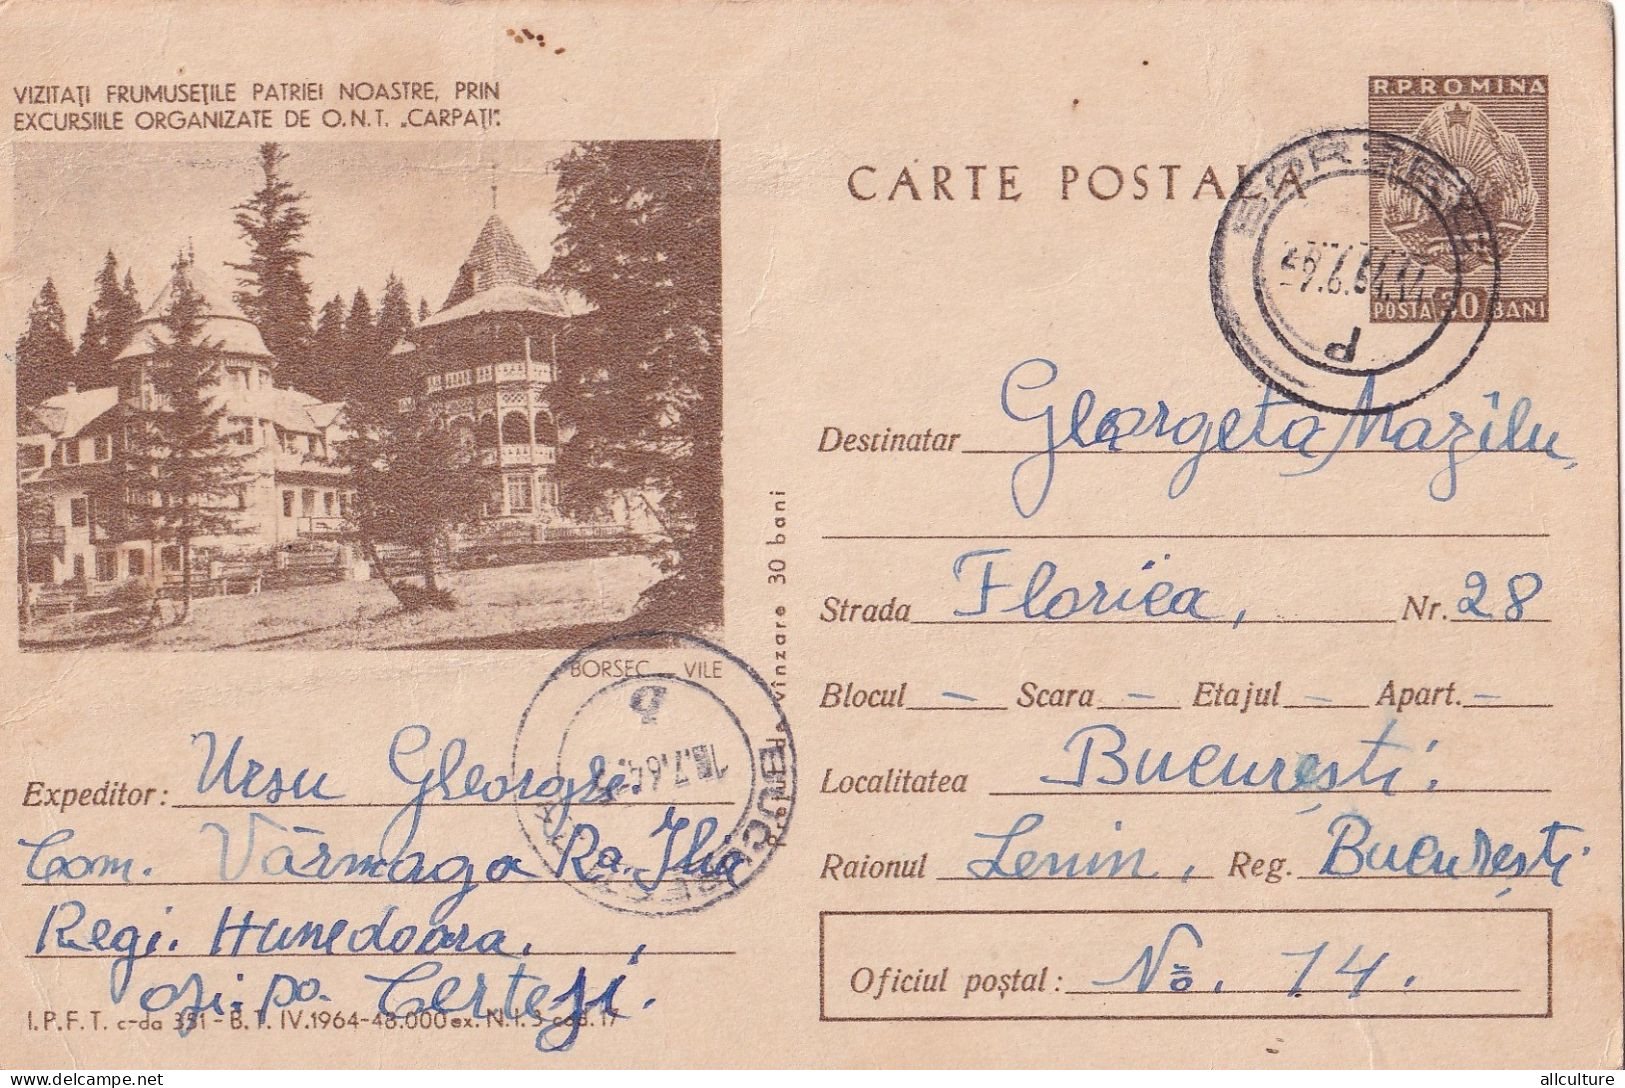 VIZITAȚI FRUMUSEȚILE PATRIEI NOASTRE, PRIN
EXCURSIILE ORGANIZATE DE O.N.T. „CARPAȚI".
BORSEC — VILE
Expeditor: Ursu Gheorghe.
Com. Vărmaga Ra. Ilia
Regi. Hunedoara,
ofi. po. Certeji.
I.P.F.T. c-da 351 - B.T. IV.1964-48.000 ex. N.I.S cod.17
Prețul de vînzare 30 bani
CARTE POSTALA
R.P.ROMINA
POSTA 30 BANI
Destinatar Georgeta Mazilu,
Strada Florica, Nr. 28
Blocul — Scara — Etajul — Apart. —
Localitatea București.
Raionul Lenin, Reg. București
Oficiul poștal: No. 14.
allculture
delcampe.net